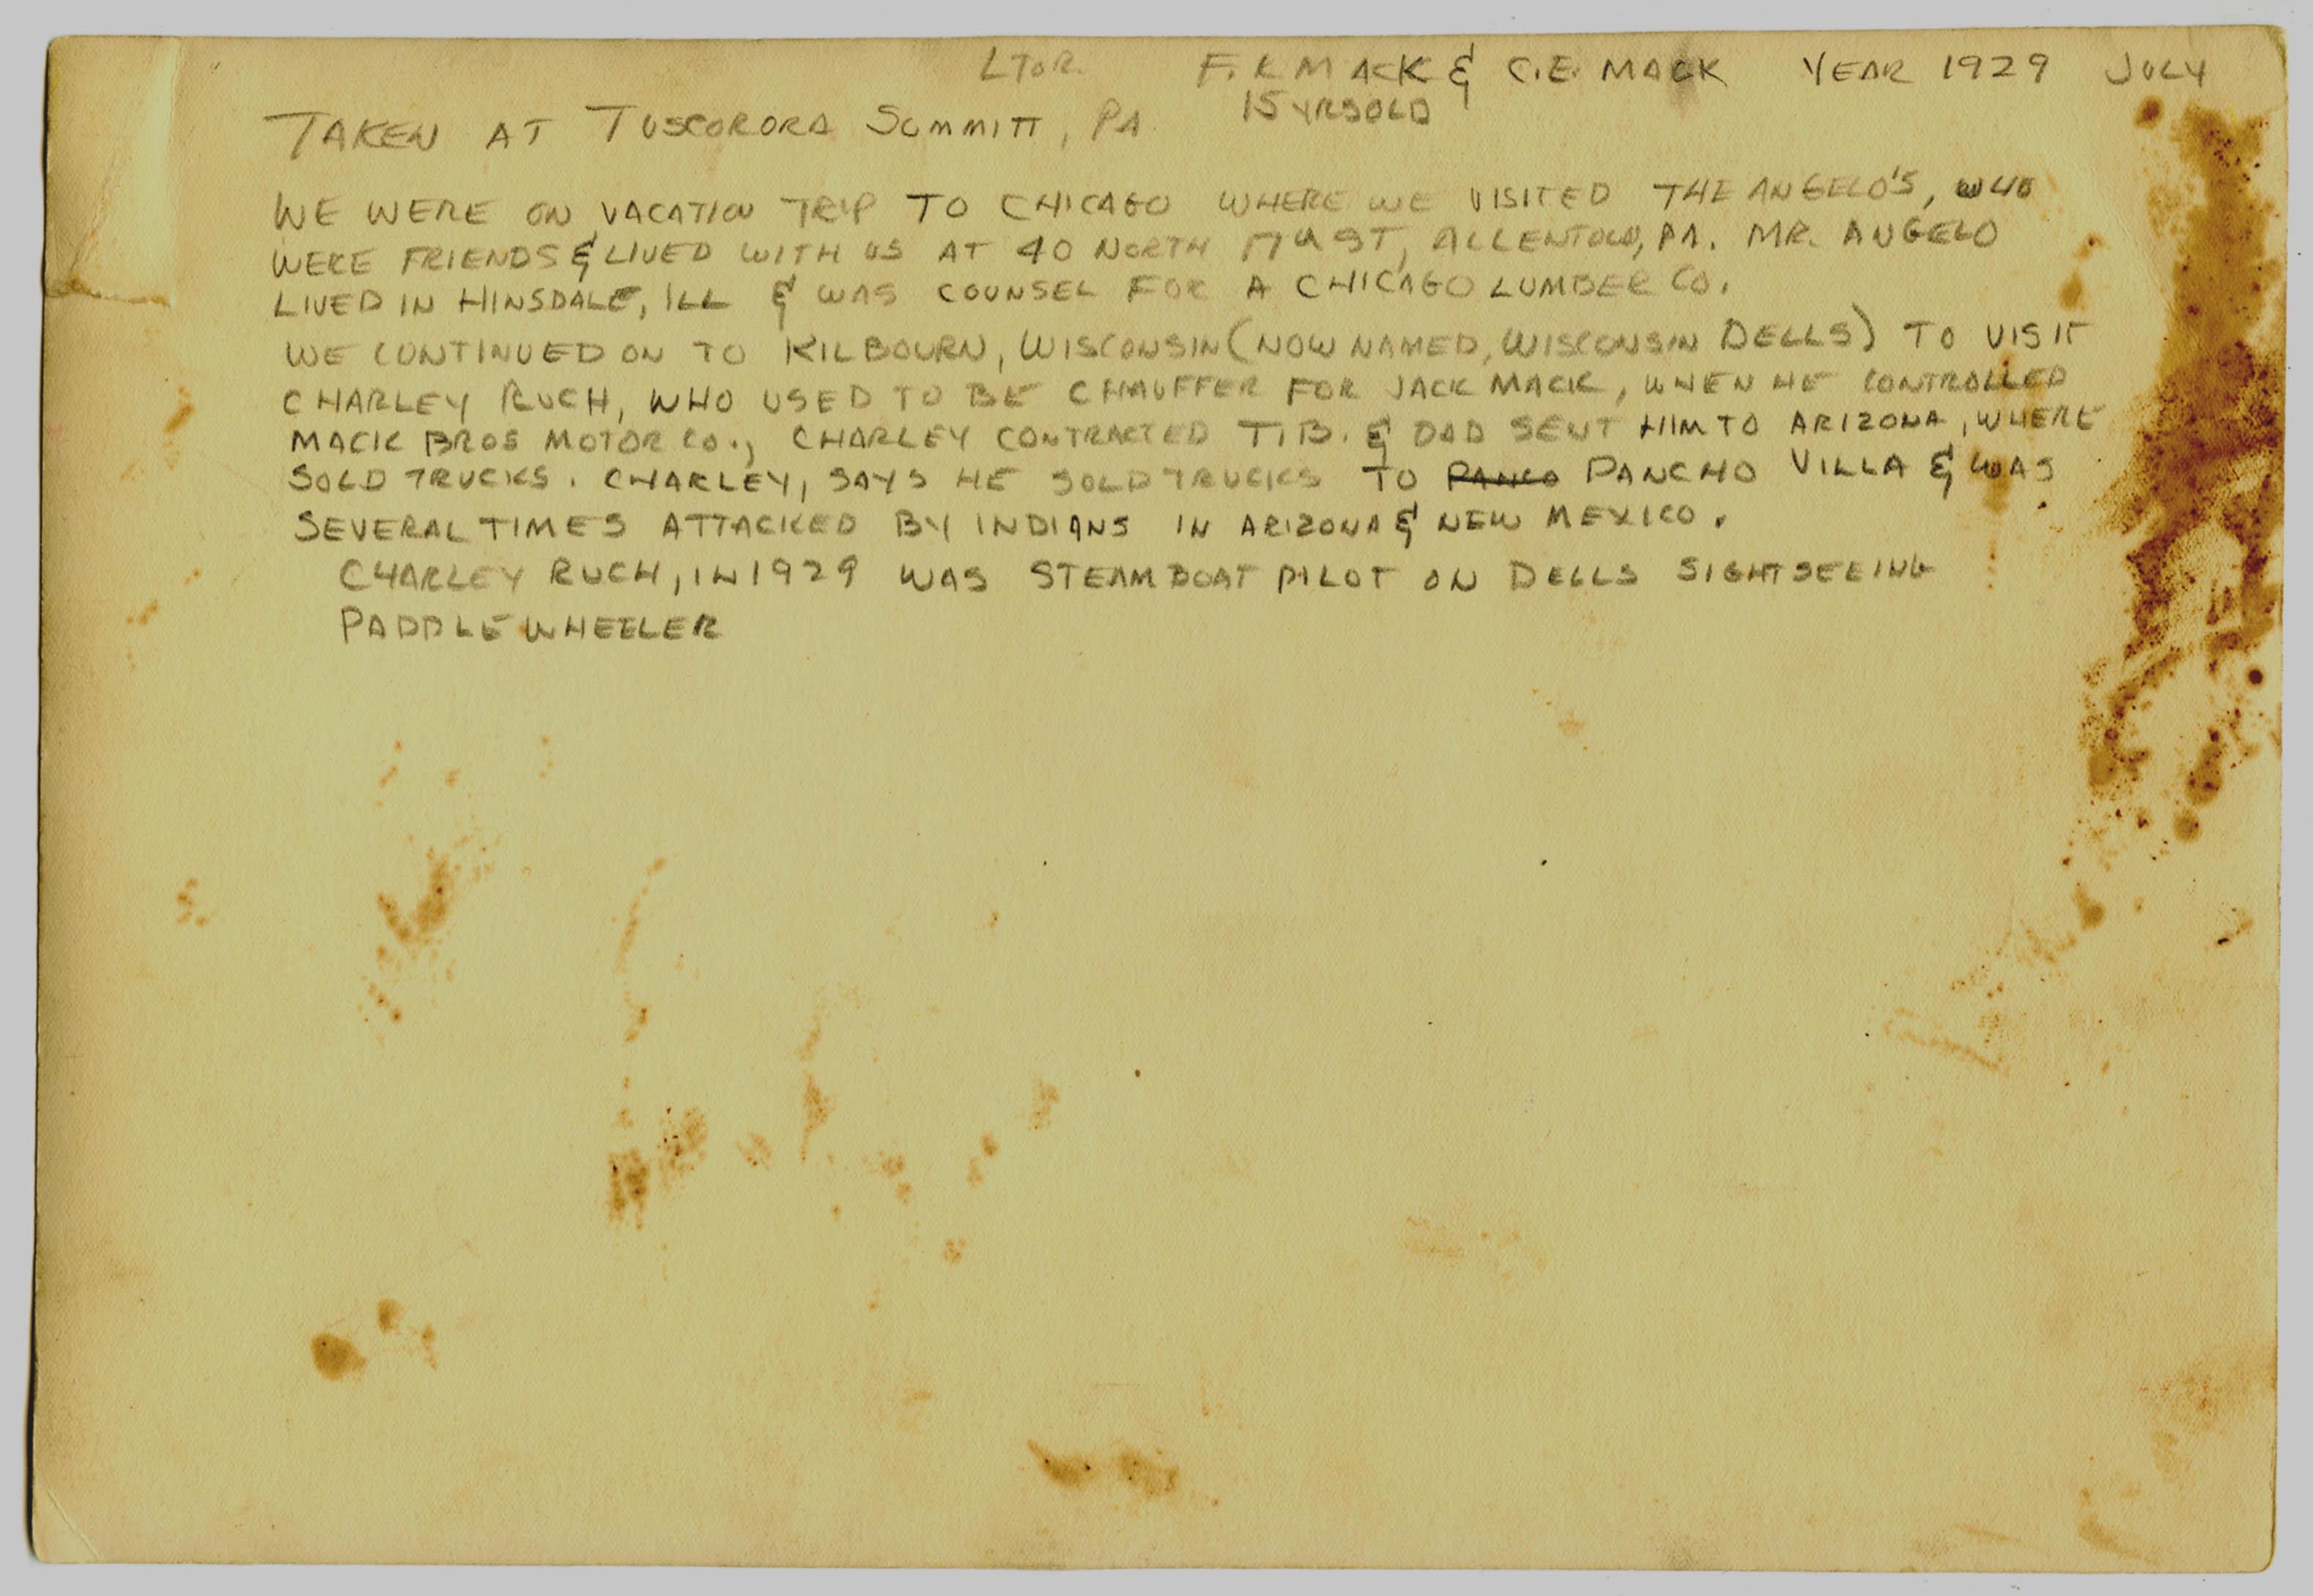 L TO R. F.K MACK & C.E. MACK YEAR 1929 JULY
15 YRS OLD
TAKEN AT TUSCORORA SUMMITT, PA
WE WERE ON VACATION TRIP TO CHICAGO WHERE WE VISITED THE ANGELO'S, WHO
WERE FRIENDS & LIVED WITH US AT 40 NORTH 17th ST, ALLENTOWN, PA. MR. ANGELO
LIVED IN HINSDALE, ILL & WAS COUNSEL FOR A CHICAGO LUMBER CO.
WE CONTINUED ON TO KILBOURN, WISCONSIN (NOW NAMED, WISCONSIN DELLS) TO VISIT
CHARLEY RUCH, WHO USED TO BE CHAUFFER FOR JACK MACK, WHEN HE CONTROLLED
MACK BROS MOTOR CO., CHARLEY CONTRACTED T.B. & DAD SENT HIM TO ARIZONA, WHERE
SOLD TRUCKS. CHARLEY, SAYS HE SOLD TRUCKS TO PANCO PANCHO VILLA & WAS
SEVERAL TIMES ATTACKED BY INDIANS IN ARIZONA & NEW MEXICO.
CHARLEY RUCH, IN 1929 WAS STEAMBOAT PILOT ON DELLS SIGHTSEEING
PADDLE WHEELER